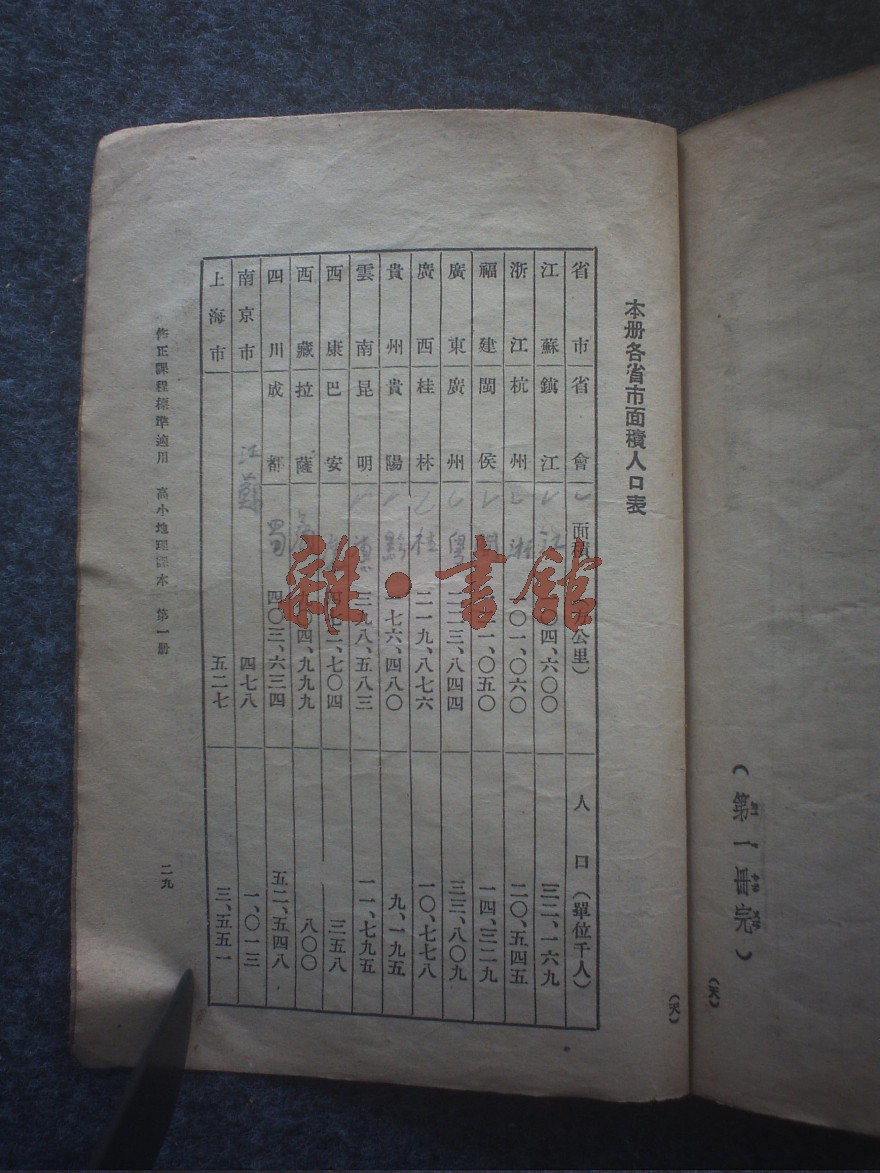 （第一冊完）
（天）
（天）
本册各省市面積人口表
省市 省會 面積 方公里） 人口（單位千人）
江蘇 鎮江 江 〇四、六〇〇 三二、一六九
浙江 杭州 浙 〇一、〇六〇 二〇、五四五
福建 閩侯 一、〇五〇 一四、三二九
廣東 廣州 粤 二二三、八四四 三三、八〇九
廣西 桂林 桂 二一九、八七六 一〇、七七八
貴州 貴陽 黔 七六、四八〇 九、一九五
雲南 昆明 滇 三九八、五八三 一一、七九五
西康 巴安 二、七〇四 三五八
西藏 拉薩 四、九九九 八〇〇
四川 成都 蜀 四〇三、六三四 五二、五四八
南京市 江蘇 四七八 一、〇一三
上海市 五二七 三、五五一
修正課程標準適用 高小地理課本 第一册
二九
雜·書館